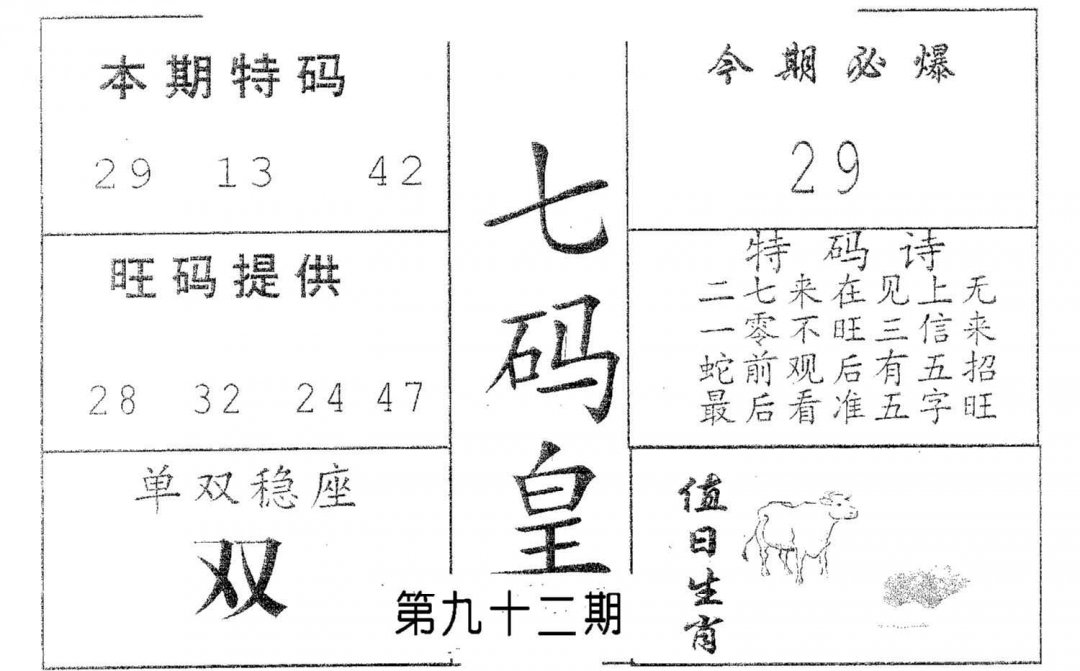 本期特码
29 13 42
旺码提供
28 32 24 47
单双稳座
双
七码皇
第九十二期
今期必爆
29
特码诗
二七来在见上无
一零不旺三信来
蛇前观后有五招
最后看准五字旺
值日生肖